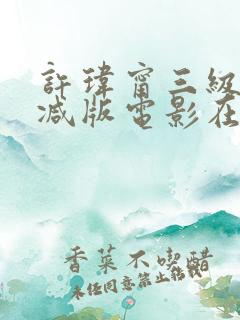 許瑋甯三級
减版電影在
香菜不喫醋
未经同意禁止转载